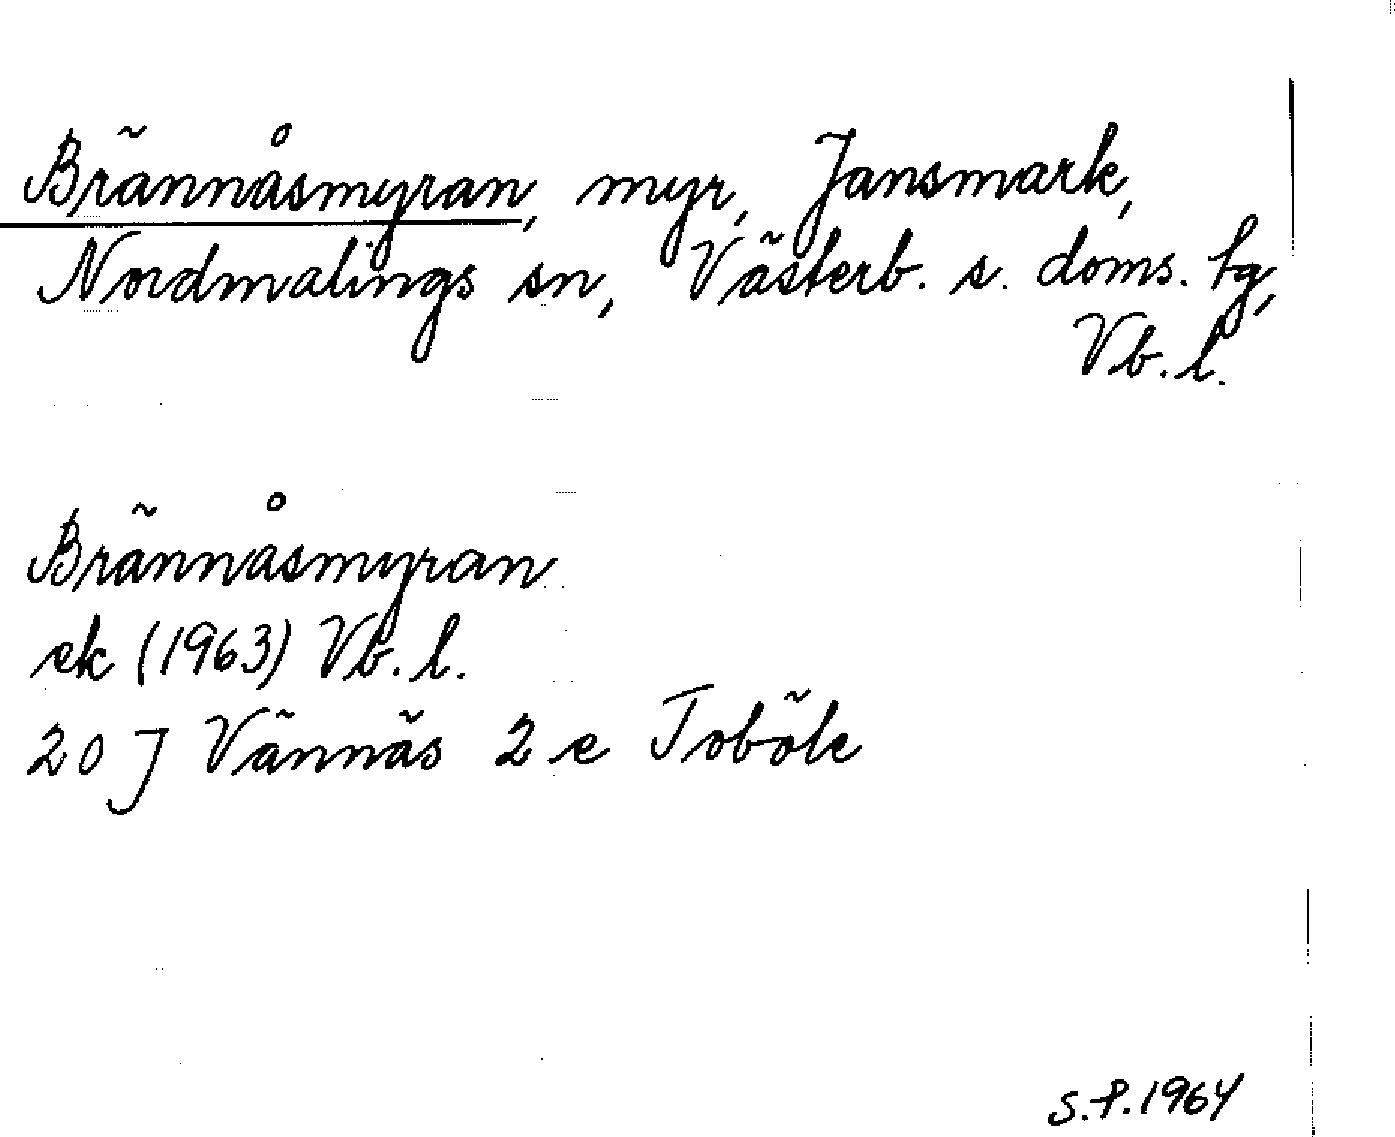 Brännåsmyran, myr, Jansmark,
Nordmalings sn, Västerb. s. doms. tg,
Vb. l.
Brännåsmyran
ek (1963) Vb. l.
20 J Vännäs 2 e Toböle
S.P. 1964